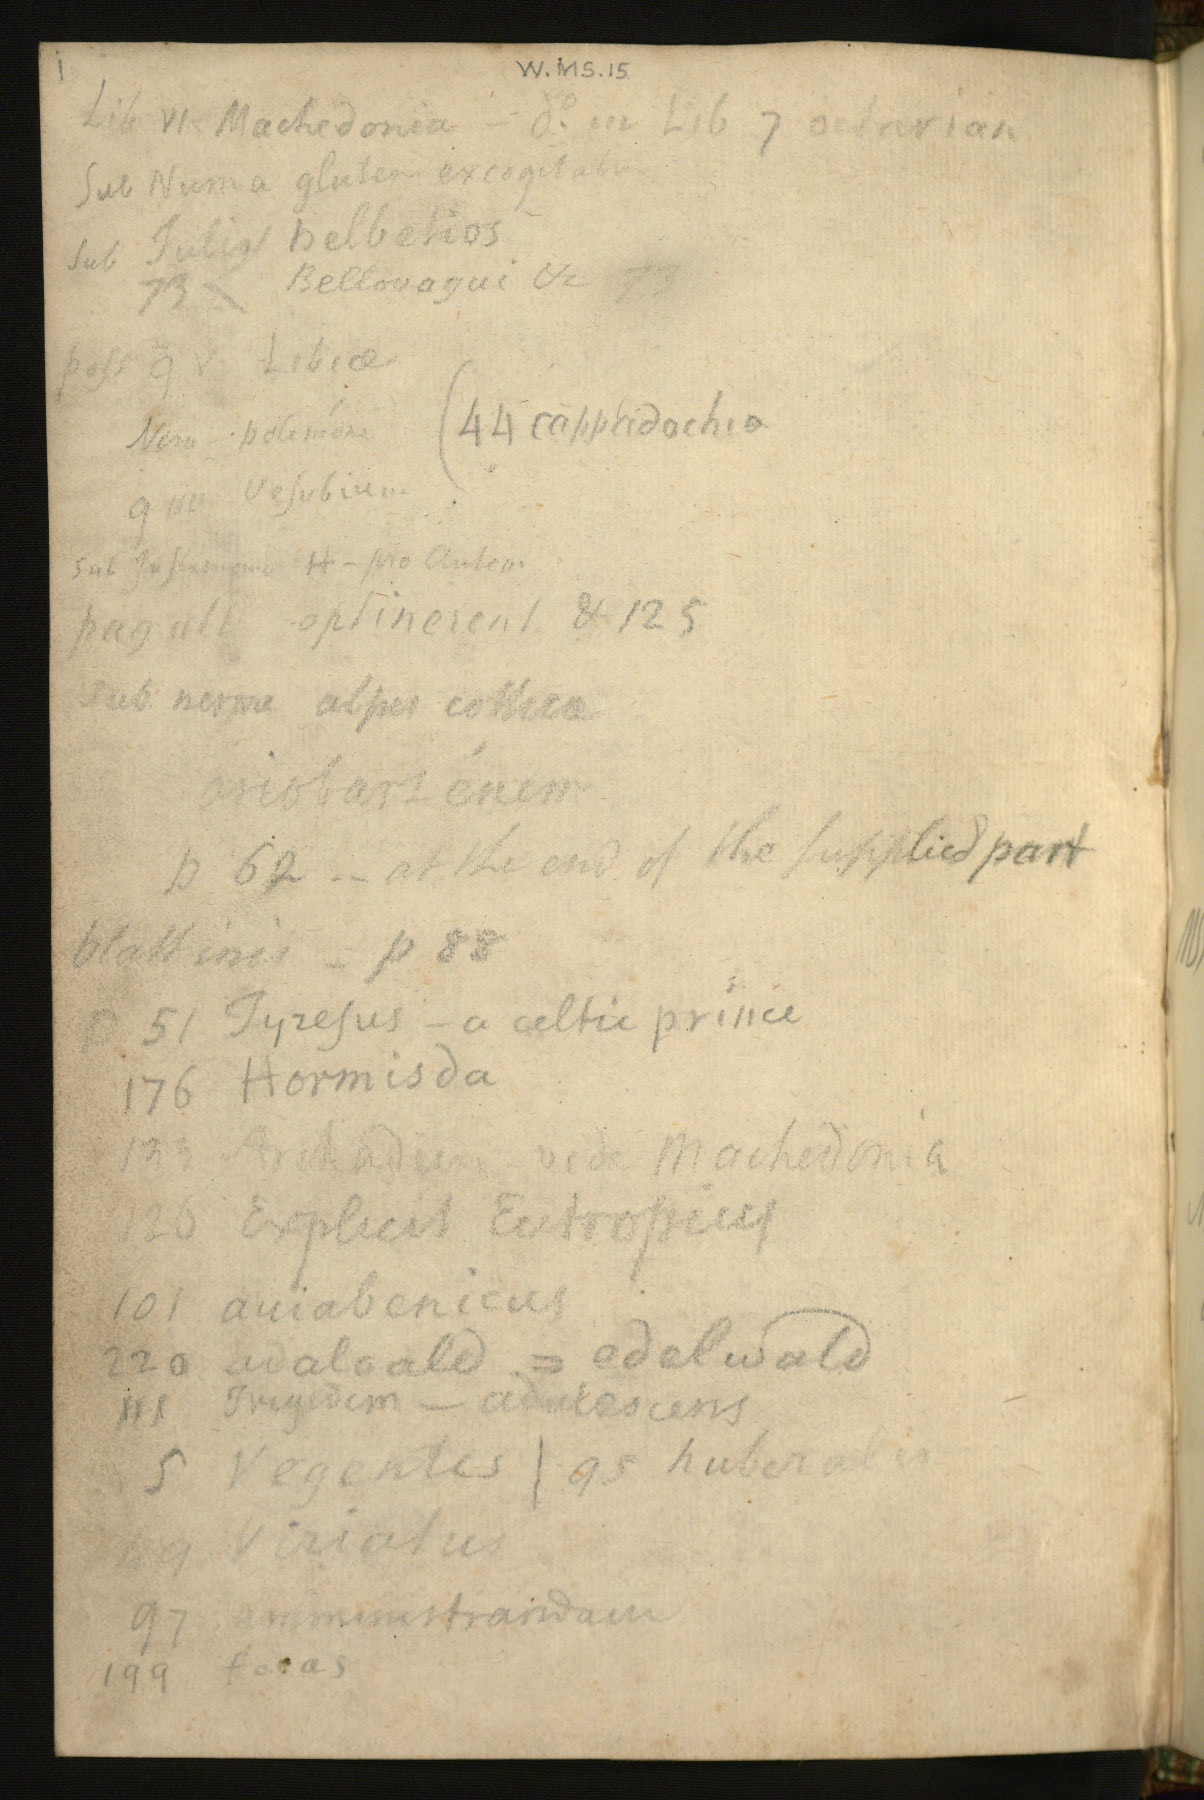 i
W.MS.15
Lib VI Machedonia – do. in Lib 7 octavian
Sub Numa gluten excogitatu
sub Julio helbetios
73 Bellovagui &c 73
post q V Libiæ
Nero – polemóne (44 cappadochia
q IIII Vesubium
sub H – pro Autem
pag ult optinerent & 125
sub nerone alpes cottica
ariobarzénem
p 62 -- at the end of the supplied part
blattinis – p 88
p 51 Tyresus – a celtic prince
176 Hormisda
123 Archadium vide Machedonia
126 Explicit Eutropius
101 aviabenicus
220 adaloald = edelwald
111 – adulescens
5 Vegentes | 95 huberalis
69 Viriatus
97 amministrandam
199 focas